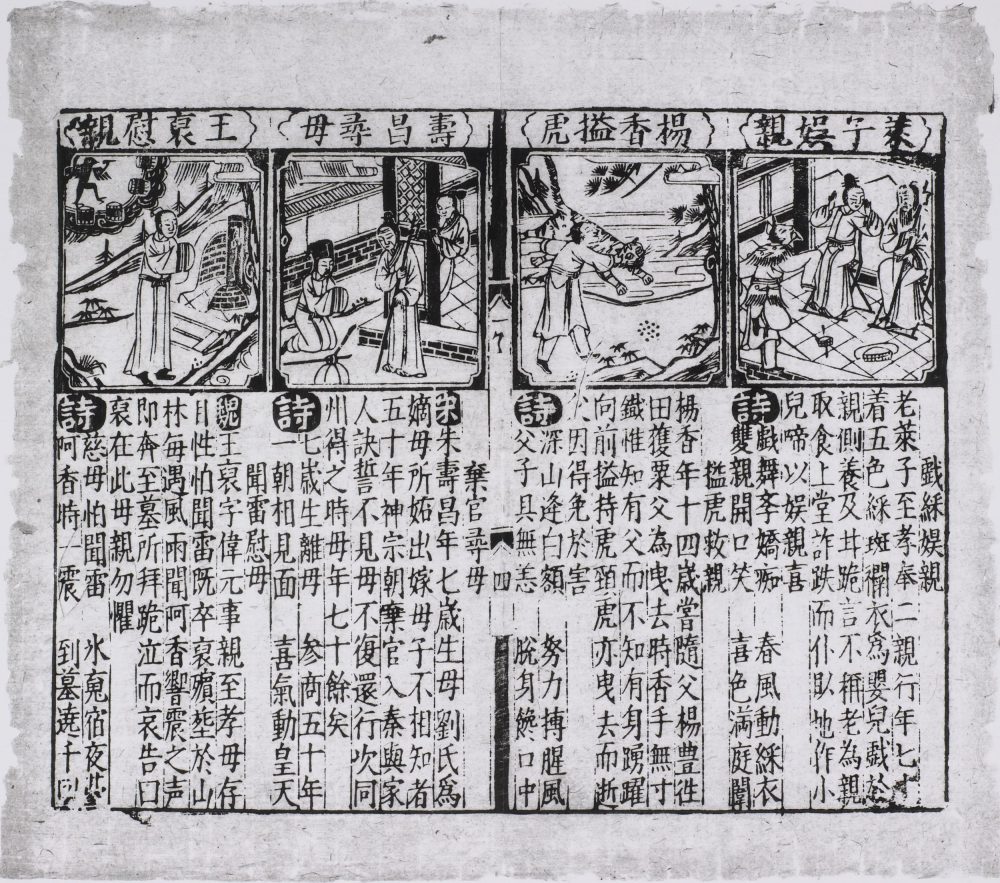 萊子娛親
戲綵娛親
老萊子至孝奉二親行年七十
着五色綵斑斕衣爲嬰兒戲於
親側養及廾跪言不稱老為親
取食上堂詐跌而仆臥地作小
兒啼以娛親喜
詩 戲舞孝嬌痴 春風動綵衣
雙親開口笑 喜色滿庭闈
楊香搤虎
搤虎救親
楊香年十四歲嘗隨父楊豊徃
田獲粟父為曳去時香手無寸
鐵惟知有父而不知有身踴躍
向前搤持虎頸虎亦曳去而逝
因得免於害
詩 深山逢白額 努力搏腥風
父子具無恙 脫身饞口中
四
壽昌尋母
棄官尋母
宋朱壽昌年七歲生母劉氏爲
嫡母所妬出嫁母子不相知者
五十年神宗朝棄官入秦與家
人訣誓不見母不復還行次同
州得之時母年七十餘矣
詩 七歲生離母 參商五十年
一朝相見面 喜氣動皇天
王裒慰親
聞雷慰母
魏王裒字偉元事親至孝母存
日性怕聞雷既卒裒殯塟於山
林每遇風雨聞呵香響震之声
即奔至墓所拜跪泣而哀告曰
裒在此母親勿懼
詩 慈母怕聞雷 氷䰟宿夜
阿香時一震 到墓遶千